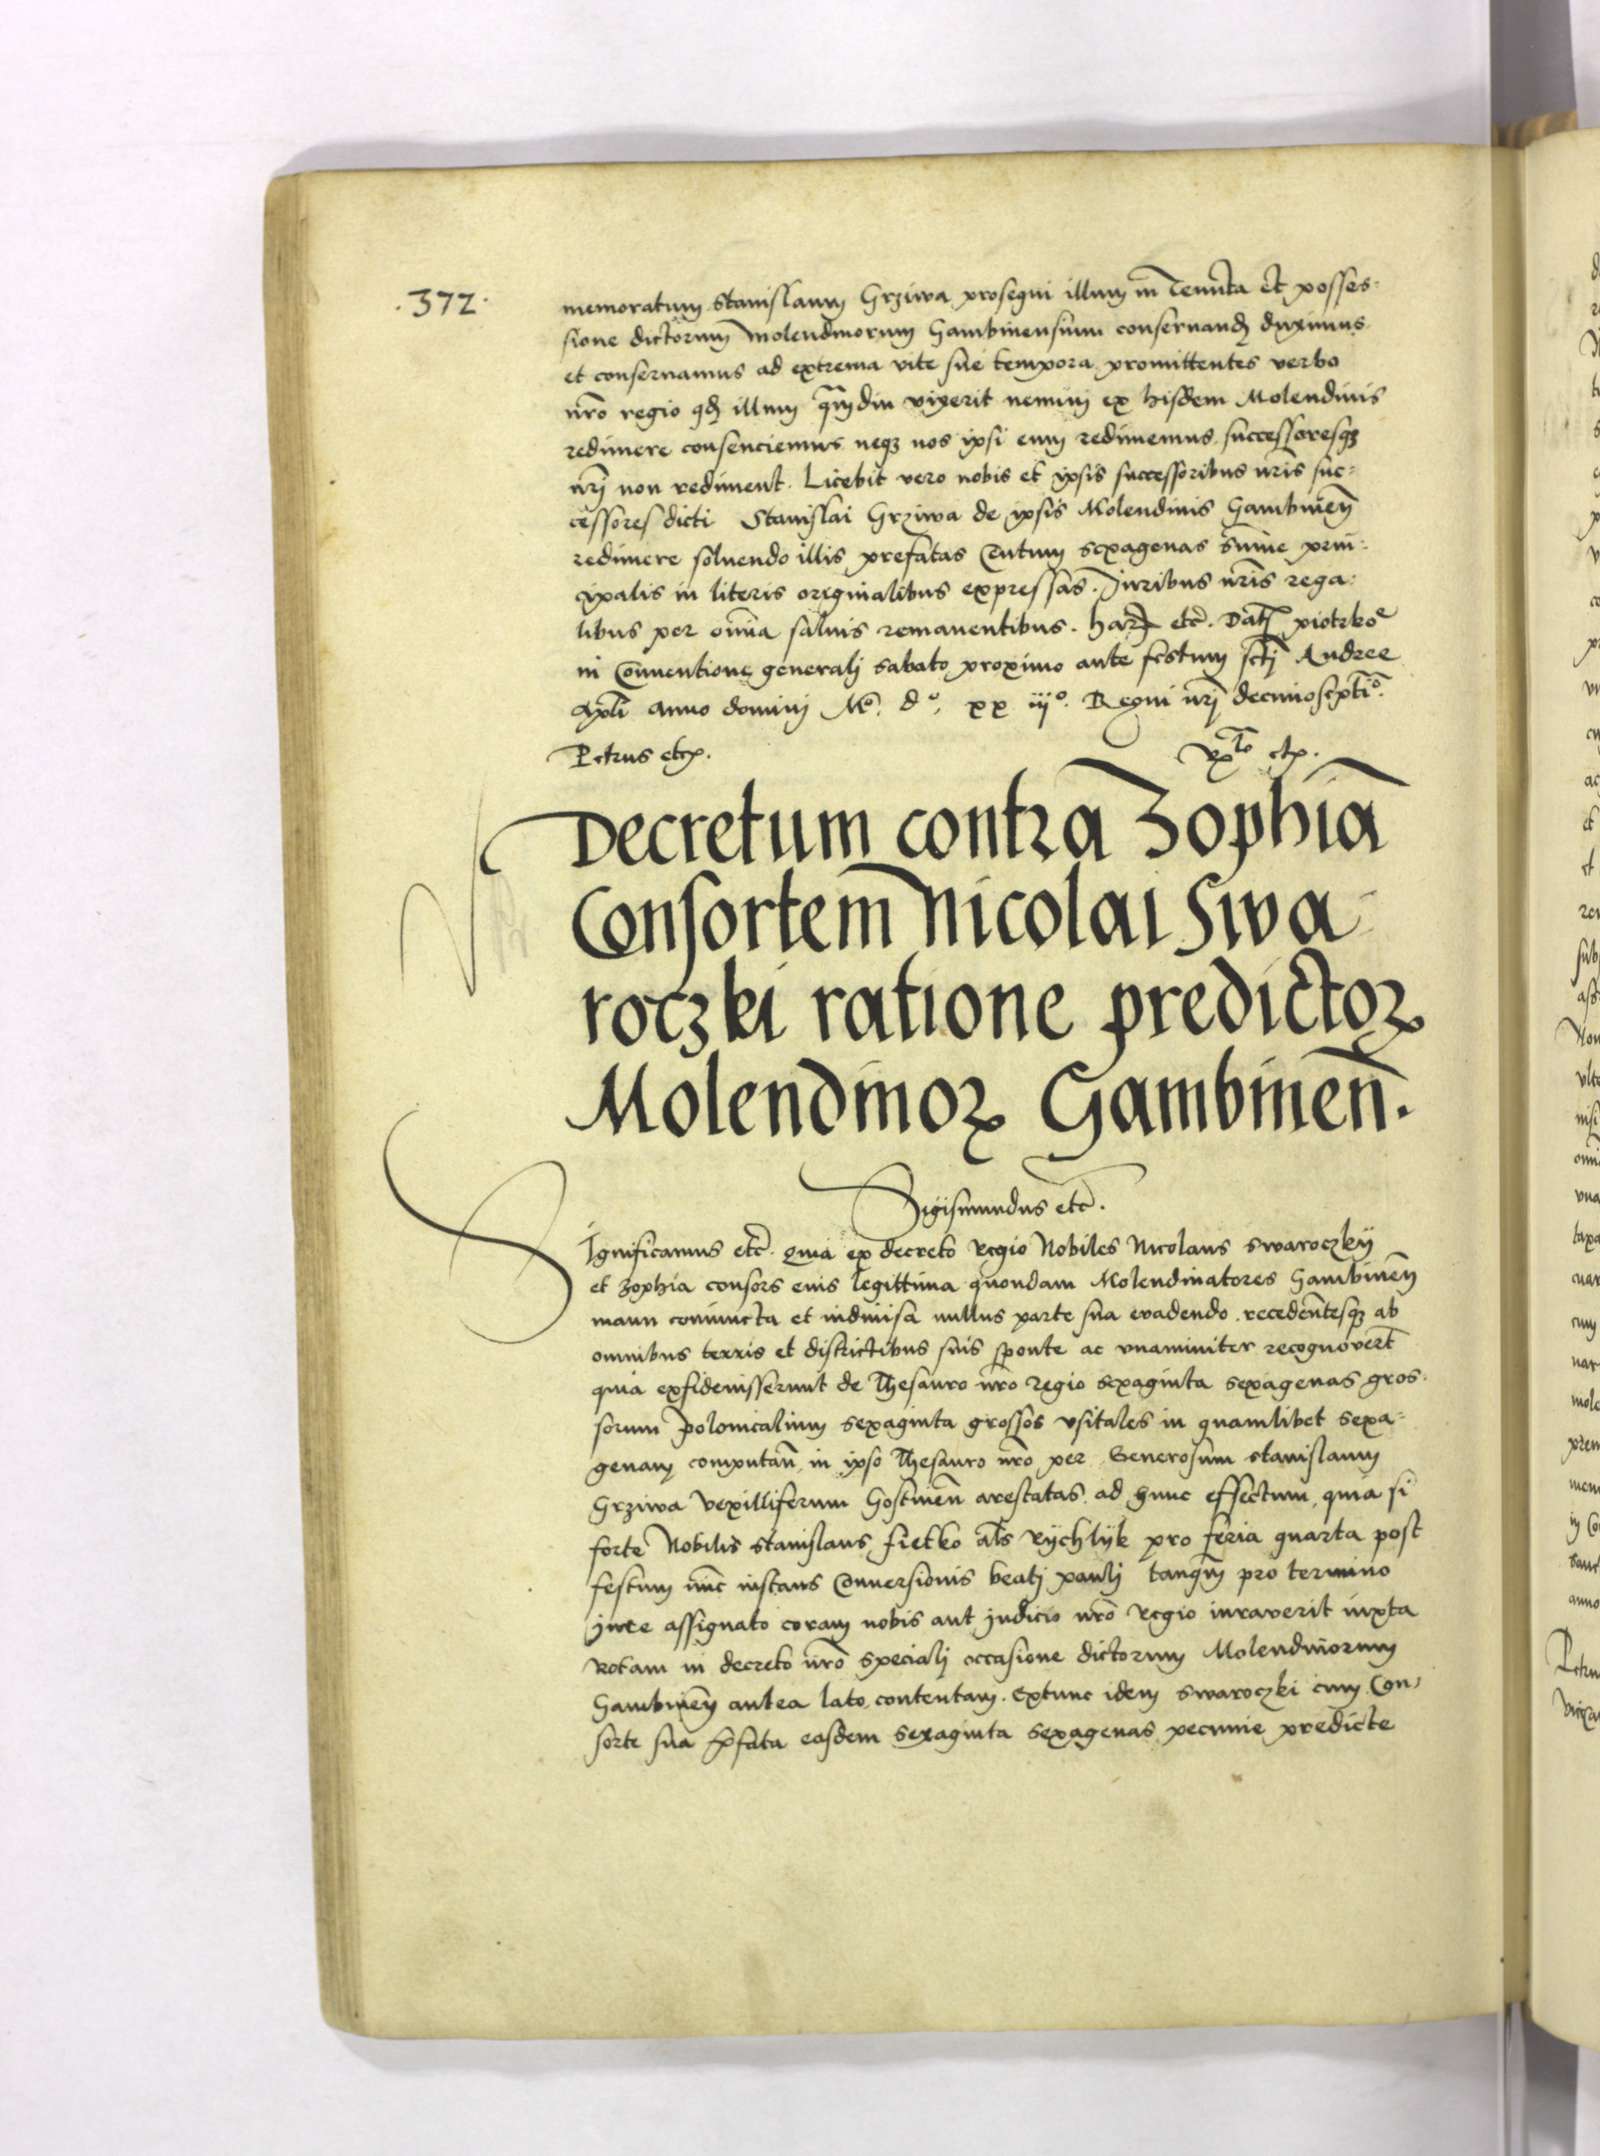 .372.
memoratum Stanislaum Grziwa prosequi illum in Tenuta et posses-
sione dictorum Molendinorum Gambinensium conservand duximus
et conservamus ad extrema vite sue tempora promittentes verbo
nro regio qd illum qmdiu vixerit nemini ex hisdem Molendinis
redimere consenciemus neqz nos ipsi eum redimemus successoresqz
nrj non rediment. Licebit vero nobis et ipsis successoribus nris suc-
cessores dicti Stanislai Grziwa de ipsis Molendinis Gambinen
redimere solvendo illis prefatas Centum sexagenas sume prin-
cipalis in literis originalibus expressas. Juribus nris rega-
libus per omnia salvis remanentibus. Har etc. Dat piotrko
in Conventione generalj sabato proximo ante festum sctj Andree
apli anno dominj Mo. do. xx iijo. Regni nrj decimosepti o.
Petrus etc.
etc.
Decretum contra Zophia
Consortem Nicolai Swa
roczki ratione predictoꝝ
Molendinoꝝ Gambinen.
Sigismundus etc.
Significamus etc. Quia ex decreto Regio Nobiles Nicolaus Swaroczkij
et Zophia consors eius legittima quondam Molendinatores Gambinen
manu coniuncta et indivisa nullus parte sua evadendo recedentesqz ab
omnibus terris et districtibus suis sponte ac vnaminiter recognovert
quia exfideiusserunt de Thesauro nro regio sexaginta sexagenas gros-
sorum Polonicalium sexaginta grossos vsitales in quamlibet sexa-
genam computan in ipso Thesauro nro per Generosum Stanislaum
Grziwa Vexilliferum Gostinen arestatas ad hunc effectum quia si
forte Nobilis Stanislaus Fietko als Rychlyk pro feria quarta post
festum nunc instans Conversionis beatj paulj tanqm pro termino
iure assignato coram nobis aut judicio nro Regio iuraverit iuxta
Rotam in decreto nro specialj occasione dictorum Molendinorum
Gambinen antea lato contentam. Extunc idem Swaroczki cum Con-
sorte sua pfata easdem sexaginta sexagenas pecunie predicte